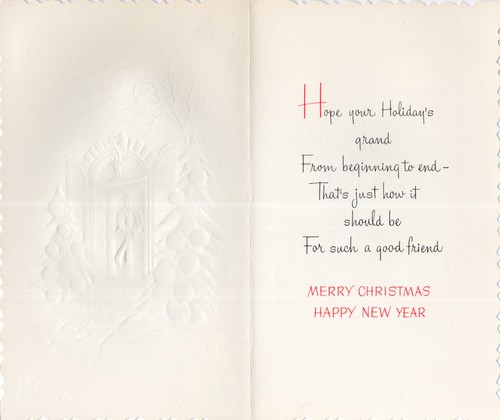 Hope your Holiday's
grand
From beginning to end-
That's just how it
should be
For such a good friend
MERRY CHRISTMAS
HAPPY NEW YEAR